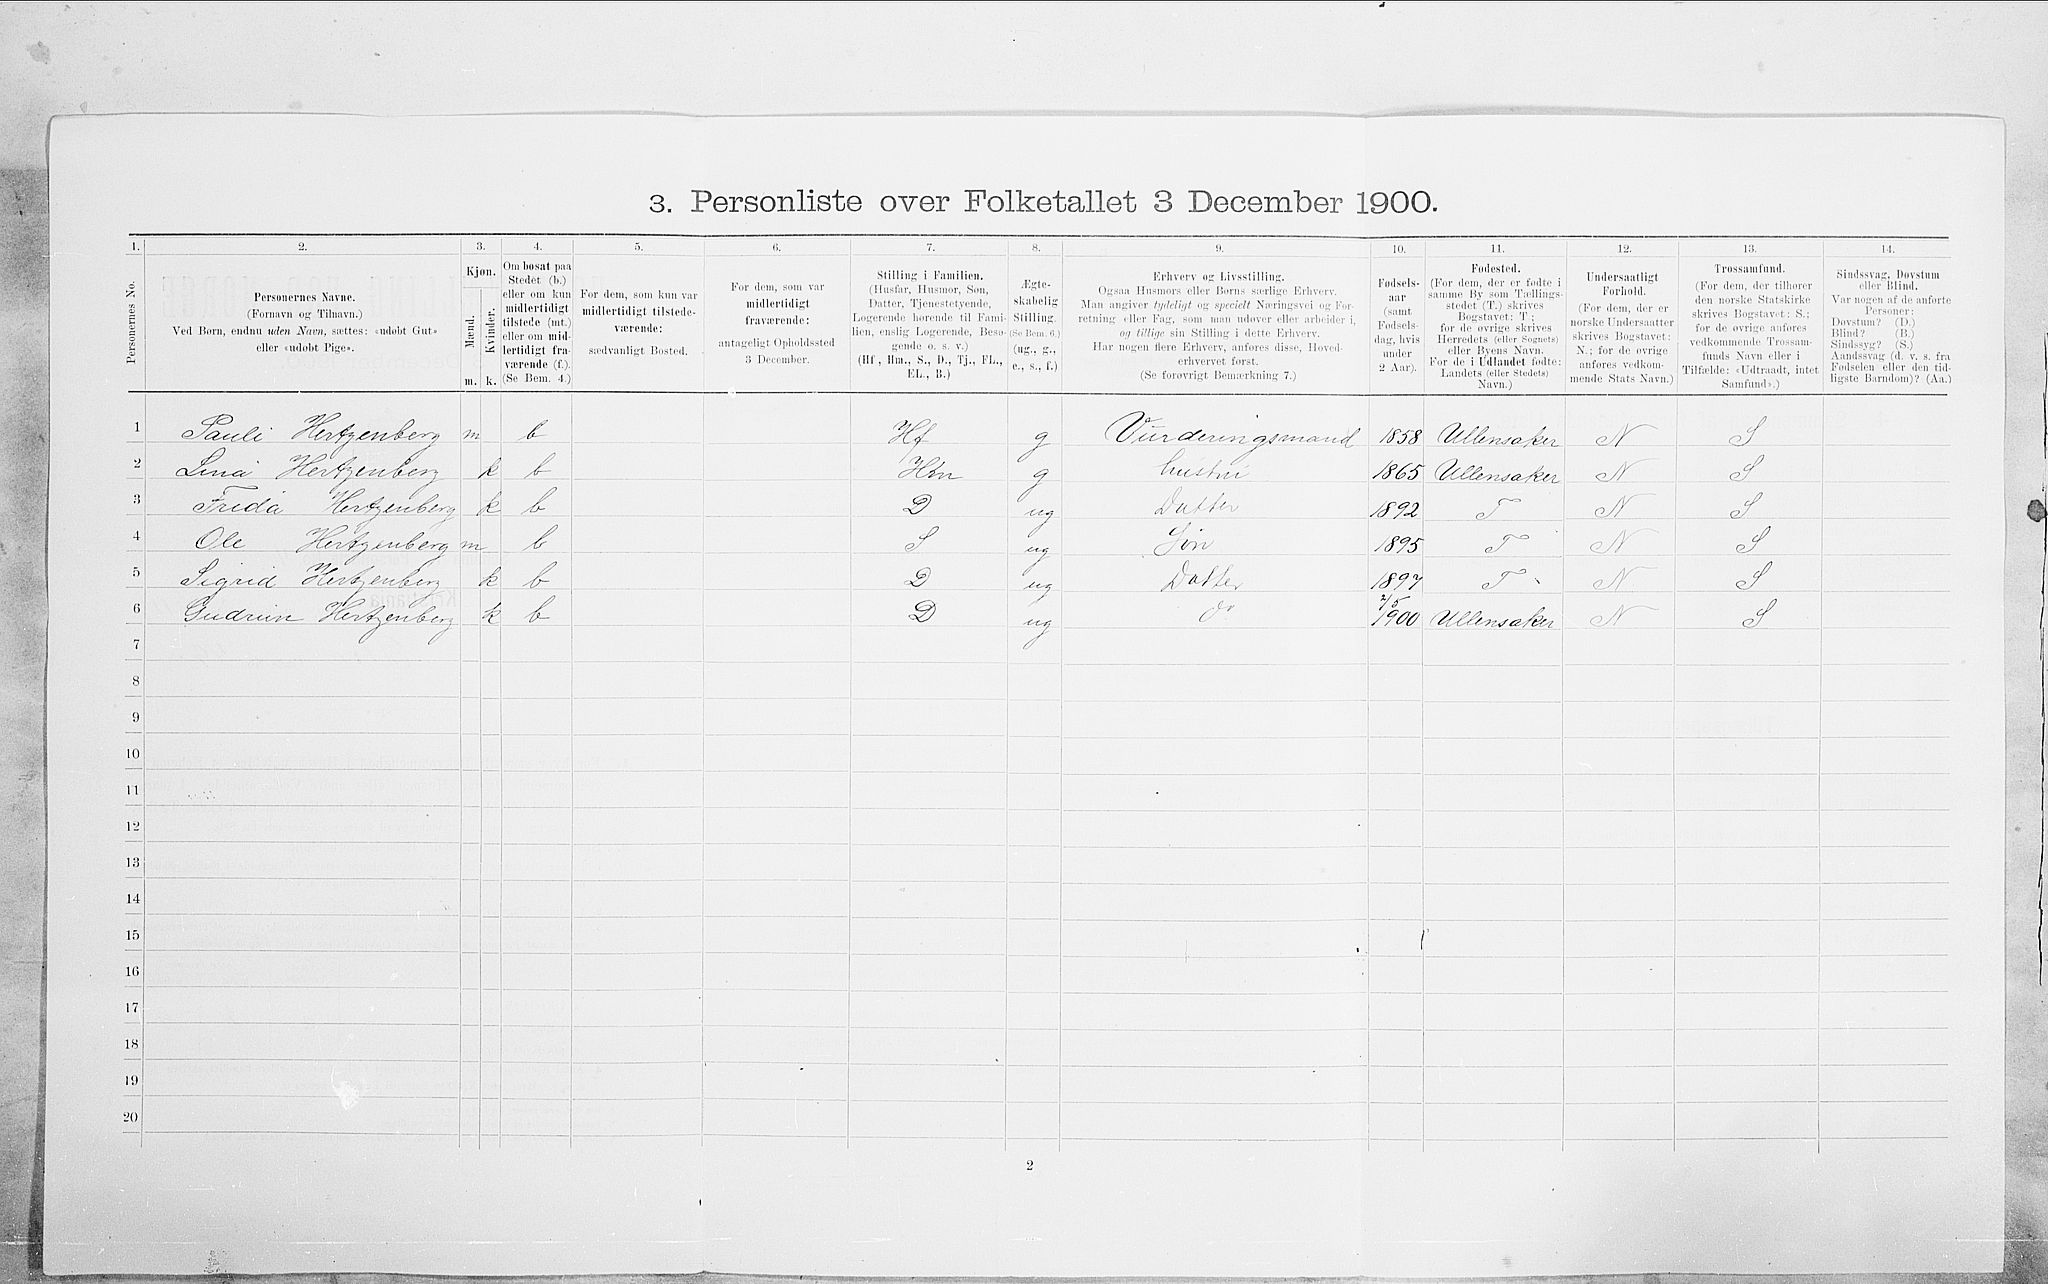 3. Personliste over Folketallet 3 December 1900.
1. 2. 3. 4. 5. 6. 7. 8. 9. 10. 11. 12. 13. 14.
Personernes No.
Personernes Navne.
(Fornavn og Tilnavn.)
Ved Børn, endnu uden Navn, sættes: «udøbt Gut»
eller «udøbt Pige».
Kjøn.
Mænd.
Kvinder.
m. k.
Om bosat paa
Stedet (b.)
eller om kun
midlertidigt
tilstede (mt.)
eller om mid-
lertidigt fra-
værende (f.).
(Se Bem. 4.)
For dem, som kun var
midlertidigt tilstede-
værende:
sædvanligt Bosted.
For dem, som var
midlertidigt
fraværende:
antageligt Opholdssted
3 December.
Stilling i Familien.
(Husfar, Husmor, Søn,
Datter, Tjenestetyende,
Logerende hørende til Fami-
lien, enslig Logerende, Besø-
gende o. s. v.)
(Hf, Hm., S., D., Tj., FL.,
EL., B.)
Ægte-
skabelig
Stilling.
(Se Bem. 6.)
(ug., g.,
e., s., f.)
Erhverv og Livsstilling.
Ogsaa Husmors eller Børns særlige Erhverv.
Man angiver tydeligt og specielt Næringsvei og For-
retning eller Fag, som man udøver eller arbeider i,
og tillige sin Stilling i dette Erhverv.
Har nogen flere Erhverv, anføres disse, Hoved-
erhvervet først.
(Se forøvrigt Bemærkning 7.)
Fødsels-
aar
(samt
Fødsels-
dag, hvis
under
2 Aar).
Fødested.
(For dem, der er fødte i
samme By som Tællings-
stedet (T.) skrives
Bogstavet: T;
for de øvrige skrives
Herredets (eller Sognets)
eller Byens Navn.
For de i Udlandet fødte:
Landets (eller Stedets)
Navn.)
Undersaatligt
Forhold.
(For dem, der er
norske Undersaatter
skrives Bogstavet:
N.; for de øvrige
anføres vedkom-
mende Stats Navn.)
Trossamfund.
(For dem, der tilhører
den norske Statskirke
skrives Bogstavet: S.;
for de øvrige anføres
vedkommende Trossam-
funds Navn eller i
Tilfælde: «Udtraadt, intet
Samfund».)
Sindssvag, Døvstum
eller Blind.
Var nogen af de anførte
Personer:
Døvstum? (D.)
Blind? (B.)
Sindssyg? (S.)
Aandssvag (d. v. s. fra
Fødselen eller den tid-
ligste Barndom)? (Aa.)
1 Pauli Hertzenberg m b Hf g Vurderingsmand 1858 Ullensaker N S
2 Lina Hertzenberg k b Hm g hustru 1865 Ullensaker N S
3 Frida Hertzenberg k b D ug Datter 1892 T N S
4 Ole Hertzenberg m b S ug Søn 1895 T N S
5 Sigrid Hertzenberg k b D ug Datter 1897 T N S
6 Gudrun Hertzenberg k b D ug do 2/5 1900 Ullensaker N S
7
8
9
10
11
12
13
14
15
16
17
18
19
20
2